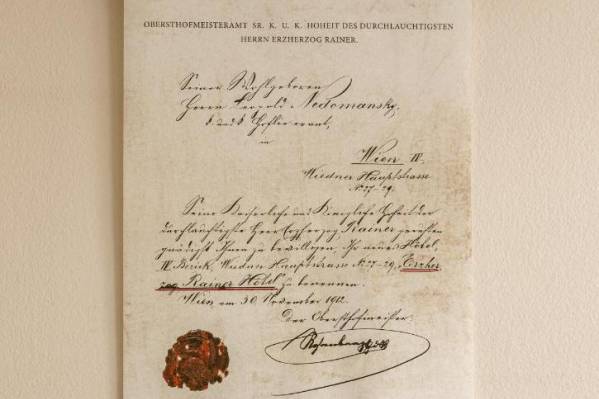 OBERSTHOFMEISTERAMT SR. K. U. K. HOHEIT DES DURCHLAUCHTIGSTEN
HERRN ERZHERZOG RAINER.
Seiner Wohlgeboren
Herrn Leopold Nedomansky,
k und k Hoflieferant,
in
Wien IV.
Wiedner Hauptstrasse
No 27-29.
Seine Kaiserliche und Königliche Hoheit der
durchlauchtigste Herr Erzherzog Rainer geruhten
gnädigst Ihnen zu bewilligen, Ihr neues Hôtel,
IV Bezirk, Wiedner Hauptstrasse No 27-29, „Erzher
zog Rainer Hôtel" zu benennen.
Wien am 30 November 1912.
Der Obersthofmeister: